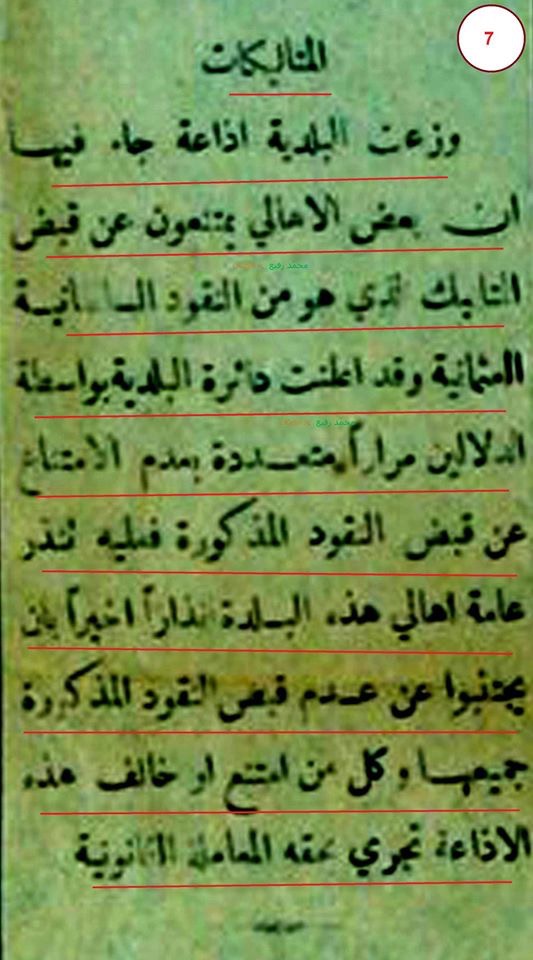 7
المتاليكات
وزعت البلدية اذاعة جاء فيها
ان بعض الاهالي يمتنعون عن قبض
محمد رفيع
المتاليك الذي هو من النقود
العثمانية وقد اعلنت دائرة البلدية بواسطة
محمد رفيع
الدلالين مراراً متعددة بعدم الامتناع
عن قبض النقود المذكورة فعليه تنذر
عامة اهالي هذه البلدة انذاراً اخيراً بان
يجتنبوا عن عدم قبض النقود المذكورة
جميعها وكل من امتنع او خالف هذه
الاذاعة تجري بحقه المعاملة القانونية